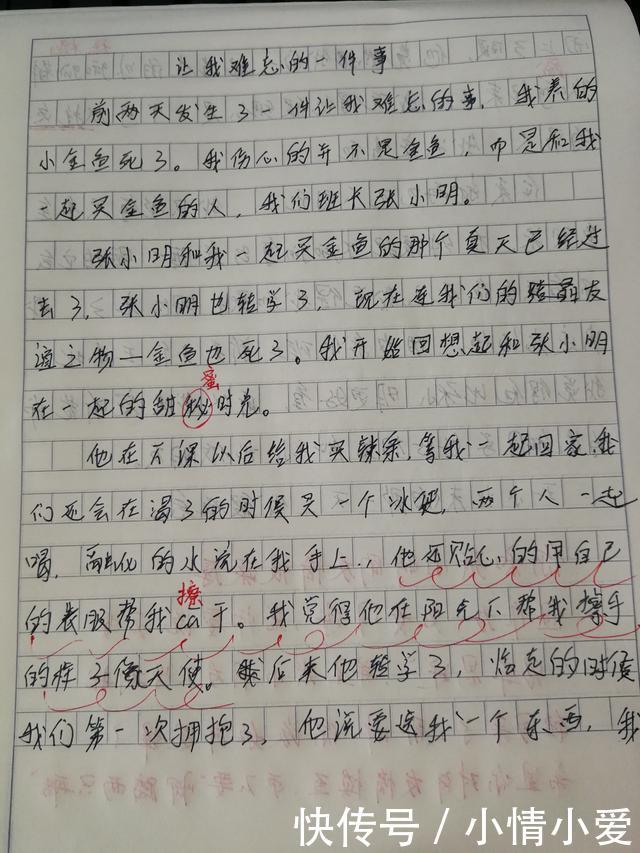 让我难忘的一件事
前两天发生了一件让我难忘的事，我养的
小金鱼死了。我伤心的并不是金鱼，而是和我
一起买金鱼的人，我们班长张小明。
张小明和我一起买金鱼的那个夏天已经过
去了，张小明也转学了，现在连我们的友
谊之物—金鱼也死了。我开始回想起和张小明
蜜
在一起的甜秘时光。
他在下课以后给我买辣条，等我一起回家，我
们还会在渴了的时候买一个冰棍，两个人一起
喝，融化的水流在我手上，他还贴心的用自己
擦
的衣服帮我ca干。我觉得他在阳光下帮我擦手
的样子像天使。后来他转学了，临走的时候
我们第一次拥抱了，他说要送我一个东西，我
快传号 / 小情小爱